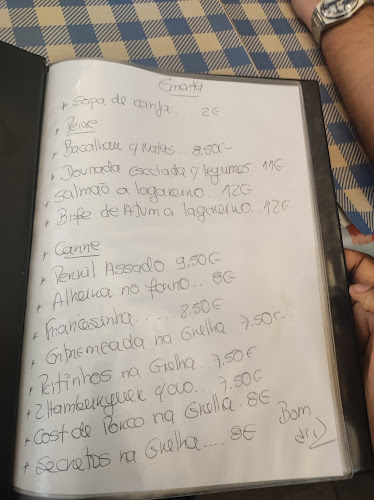 Ementa
+ Sopa de canja... 2€
+ Peixe
+ Bacalhau c/ natas... 8.50€
+ Dourada escalada c/ legumes 11€
+ Salmão a lagareiro... 12€
+ Bife de Atum a lagareiro.. 12€
+ Carne
+ Pernil Assado 9,50€
+ Alheira no forno... 8€
+ Francesinha..... 8.50€
+ na Grelha.. 7,50€
+ na Grelha.. 7,50€
+ 2 Hamburguer c/ovo... 7.50€
+ Cost de Porco na Grelha. 8€
+ Secretos na Grelha.... 8€
Bom